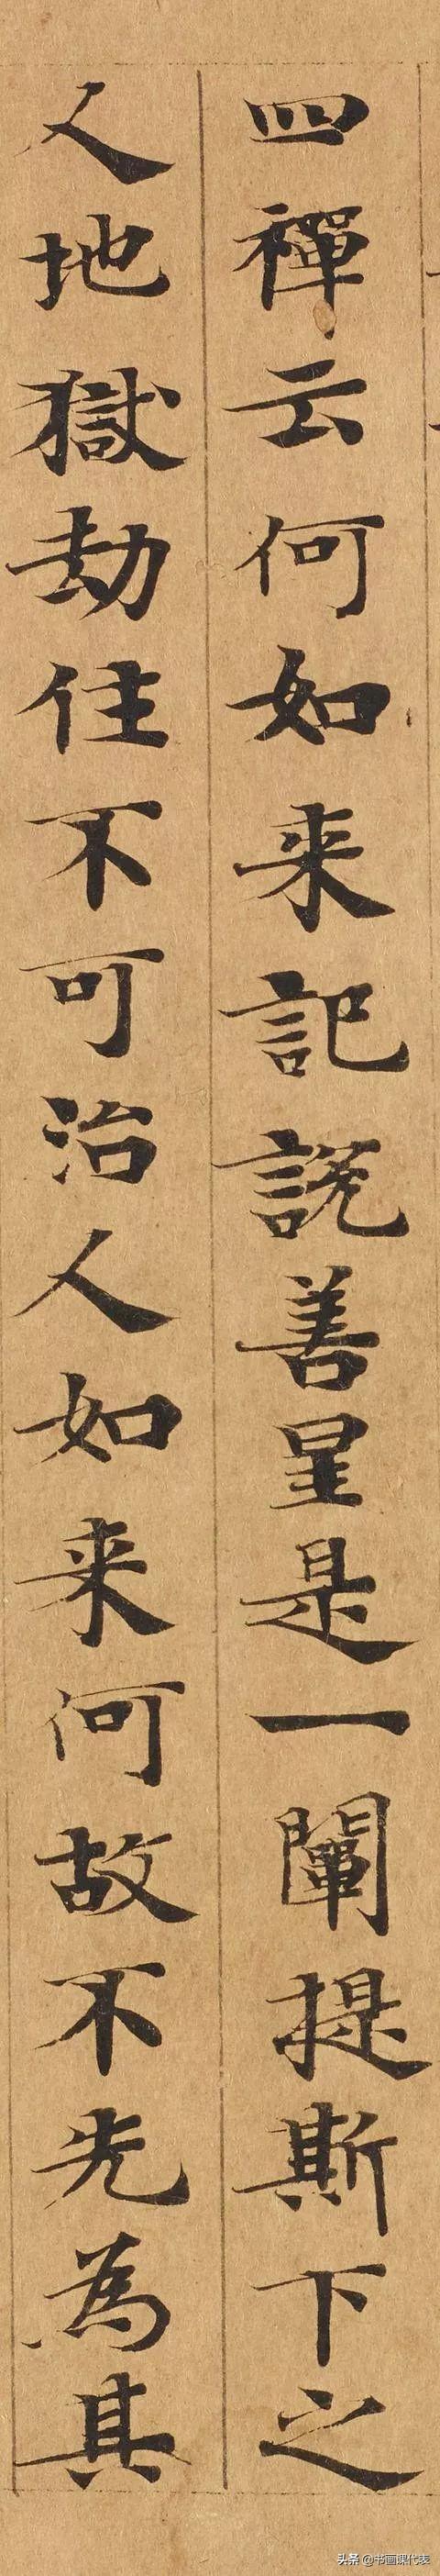 四禪云何如来記說善星是一闡提斯下之
人地獄劫住不可治人如来何故不先為其
头条 @书画课代表